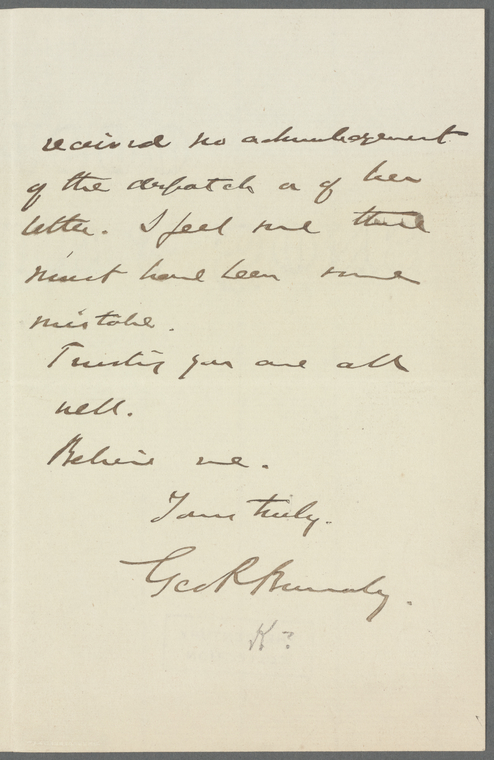 received no acknowledgement
of the despatch or of her
letter. I feel sure there
must have been some
mistake.
Trusting you are all
well.
Believe me.
Yours truly.
Geo R
K?